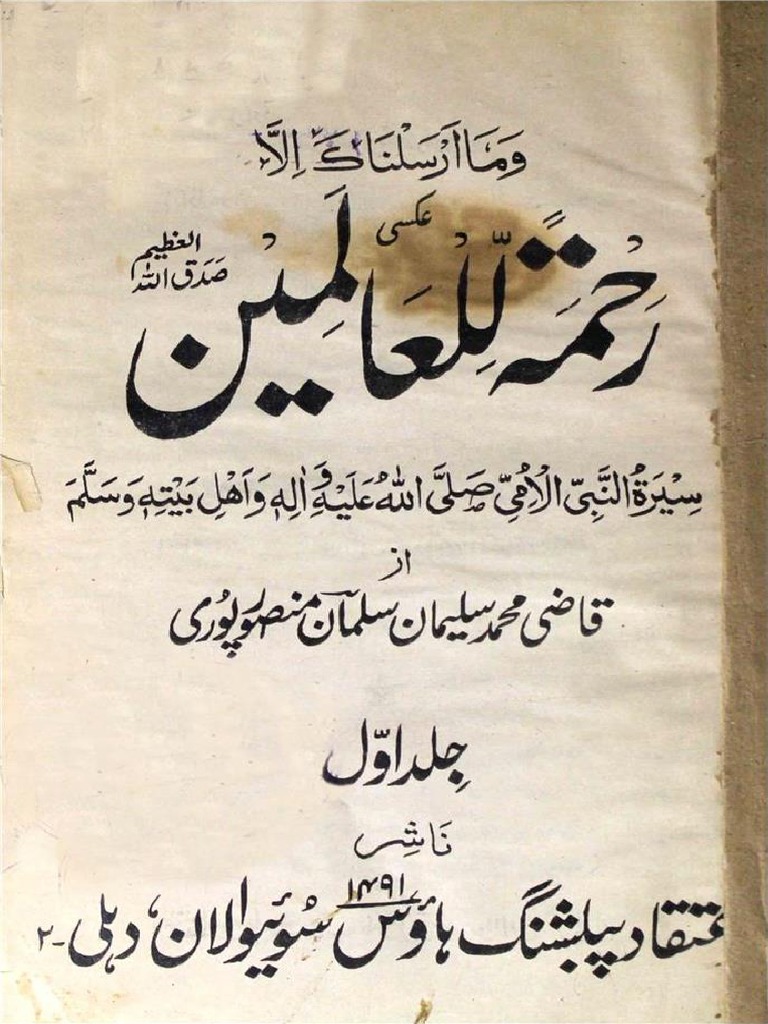 وَمَا اَرْسَلْنَاكَ اِلَّا
عکسی
رَحْمَةً لِّلْعَالَمِيْنَ
صَدَقَ اللّٰهُ العظيم
سِيْرَةُ النَّبِیِّ الْاُمِّیِّ صَلَّى اللّٰهُ عَلَيْهِ وَاٰلِهٖ وَاَهْلِ بَيْتِهٖ وَسَلَّمَ
از
قاضی محمد سلیمان سلمان منصورپوری
جِلد اوّل
نَاشِر
۱۴۹۱
عتقاد پبلشنگ ہاؤس سوئیوالان، دہلی۔۲